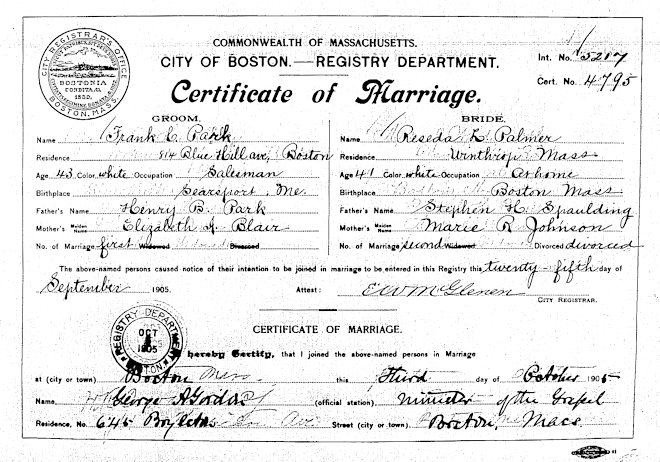 COMMONWEALTH OF MASSACHUSETTS.
CITY OF BOSTON.—REGISTRY DEPARTMENT.
Int. No. 5217
Cert. No. 4795
Certificate of Marriage.
CITY REGISTRAR'S OFFICE
BOSTONIA
CONDITA A.D.
1630.
BOSTON, MASS.
GROOM. BRIDE.
Name Frank C. Park Name Reseda L. Palmer
Residence 814 Blue Hill ave, Boston Residence, Winthrop Mass
Age 43 Color, white Occupation Salesman Age 41 Color, white Occupation At home
Birthplace Searsport, Me. Birthplace Boston Mass
Father's Name Henry B. Park Father's Name Stephen H. Spaulding
Mother's Maiden Name Elizabeth A. Blair Mother's Maiden Name Marie R. Johnson
No. of Marriage first Widowed Divorced No. of Marriage second Widowed Divorced divorced
The above-named persons caused notice of their intention to be joined in marriage to be entered in this Registry this twenty-fifth day of
September 1905. Attest: E W McGlenen
CITY REGISTRAR.
REGISTRY DEPARTMENT
OCT
1905
BOSTON
CERTIFICATE OF MARRIAGE.
hereby Certify, that I joined the above-named persons in Marriage
at (city or town) Boston Mass. this third day of October 1905
Name, George A Gordon (official station), minister of the Gospel
Residence, No. 645 Boylston Street (city or town), Boston, Mass.